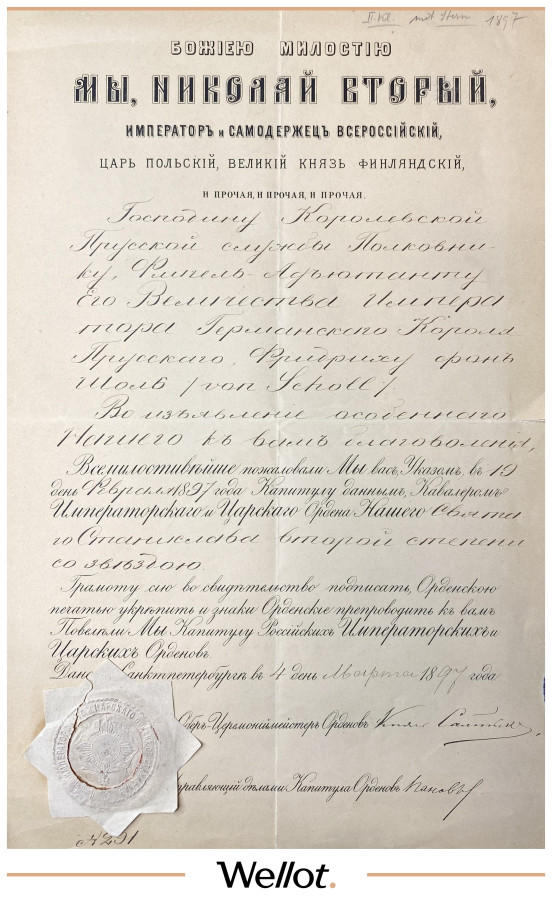 II.Kl. mit Stern 1897
БОЖІЕЮ МИЛОСТІЮ
МЫ, НИКОЛАЙ ВТОРЫЙ,
ИМПЕРАТОРЪ и САМОДЕРЖЕЦЪ ВСЕРОССІЙСКІЙ,
ЦАРЬ ПОЛЬСКІЙ, ВЕЛИКІЙ КНЯЗЬ ФИНЛЯНДСКІЙ,
И ПРОЧАЯ, И ПРОЧАЯ, И ПРОЧАЯ.
Господину Королевской
Прусской службы Полковни-
ку, Флигель-Адъютанту
Его Величества Импера
тора Германскаго Короля
Прусскаго, Фридриху фонъ
Шоль /von Scholl/.
Во изъявленіе особеннаго
Нашего къ вамъ благоволенія,
Всемилостивѣйше пожаловали Мы васъ, Указомъ, въ 19
день Февраля 1897 года Капитулу даннымъ, Кавалеромъ
Императорскаго и Царскаго Ордена Нашего Свята
го Станислава второй степени
со звѣздою.
Грамоту сію во свидѣтельство подписать, Орденскою
печатью укрѣпить и знаки Орденскіе препроводить къ вамъ
Повелѣли Мы Капитулу Россійскихъ Императорскихъ и
Царскихъ Орденовъ.
Санктпетербургѣ въ 4 день Марта 1897 года
Оберъ-Церемоніймейстеръ Орденовъ Князь
Управляющій дѣлами Капитула Орденовъ Пановъ
№ 291
Wellot.